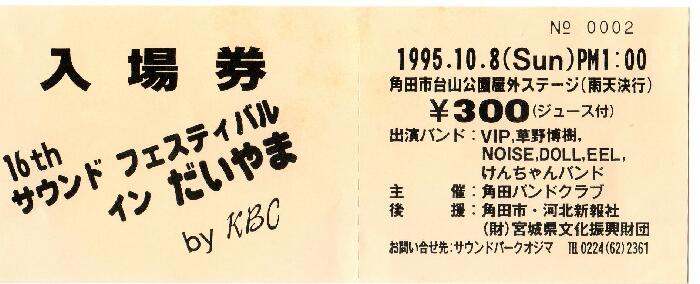 入場券
16th
サウンド フェスティバル
イン だいやま
by KBC
№ 0002
1995.10.8(Sun)PM1:00
角田市台山公園屋外ステージ(雨天決行)
¥300(ジュース付)
出演バンド：VIP,草野博樹,
NOISE,DOLL,EEL,
けんちゃんバンド
主　　催：角田バンドクラブ
後　　援：角田市・河北新報社
(財)宮城県文化振興財団
お問い合せ先：サウンドパークオジマ ℡0224(62)2361